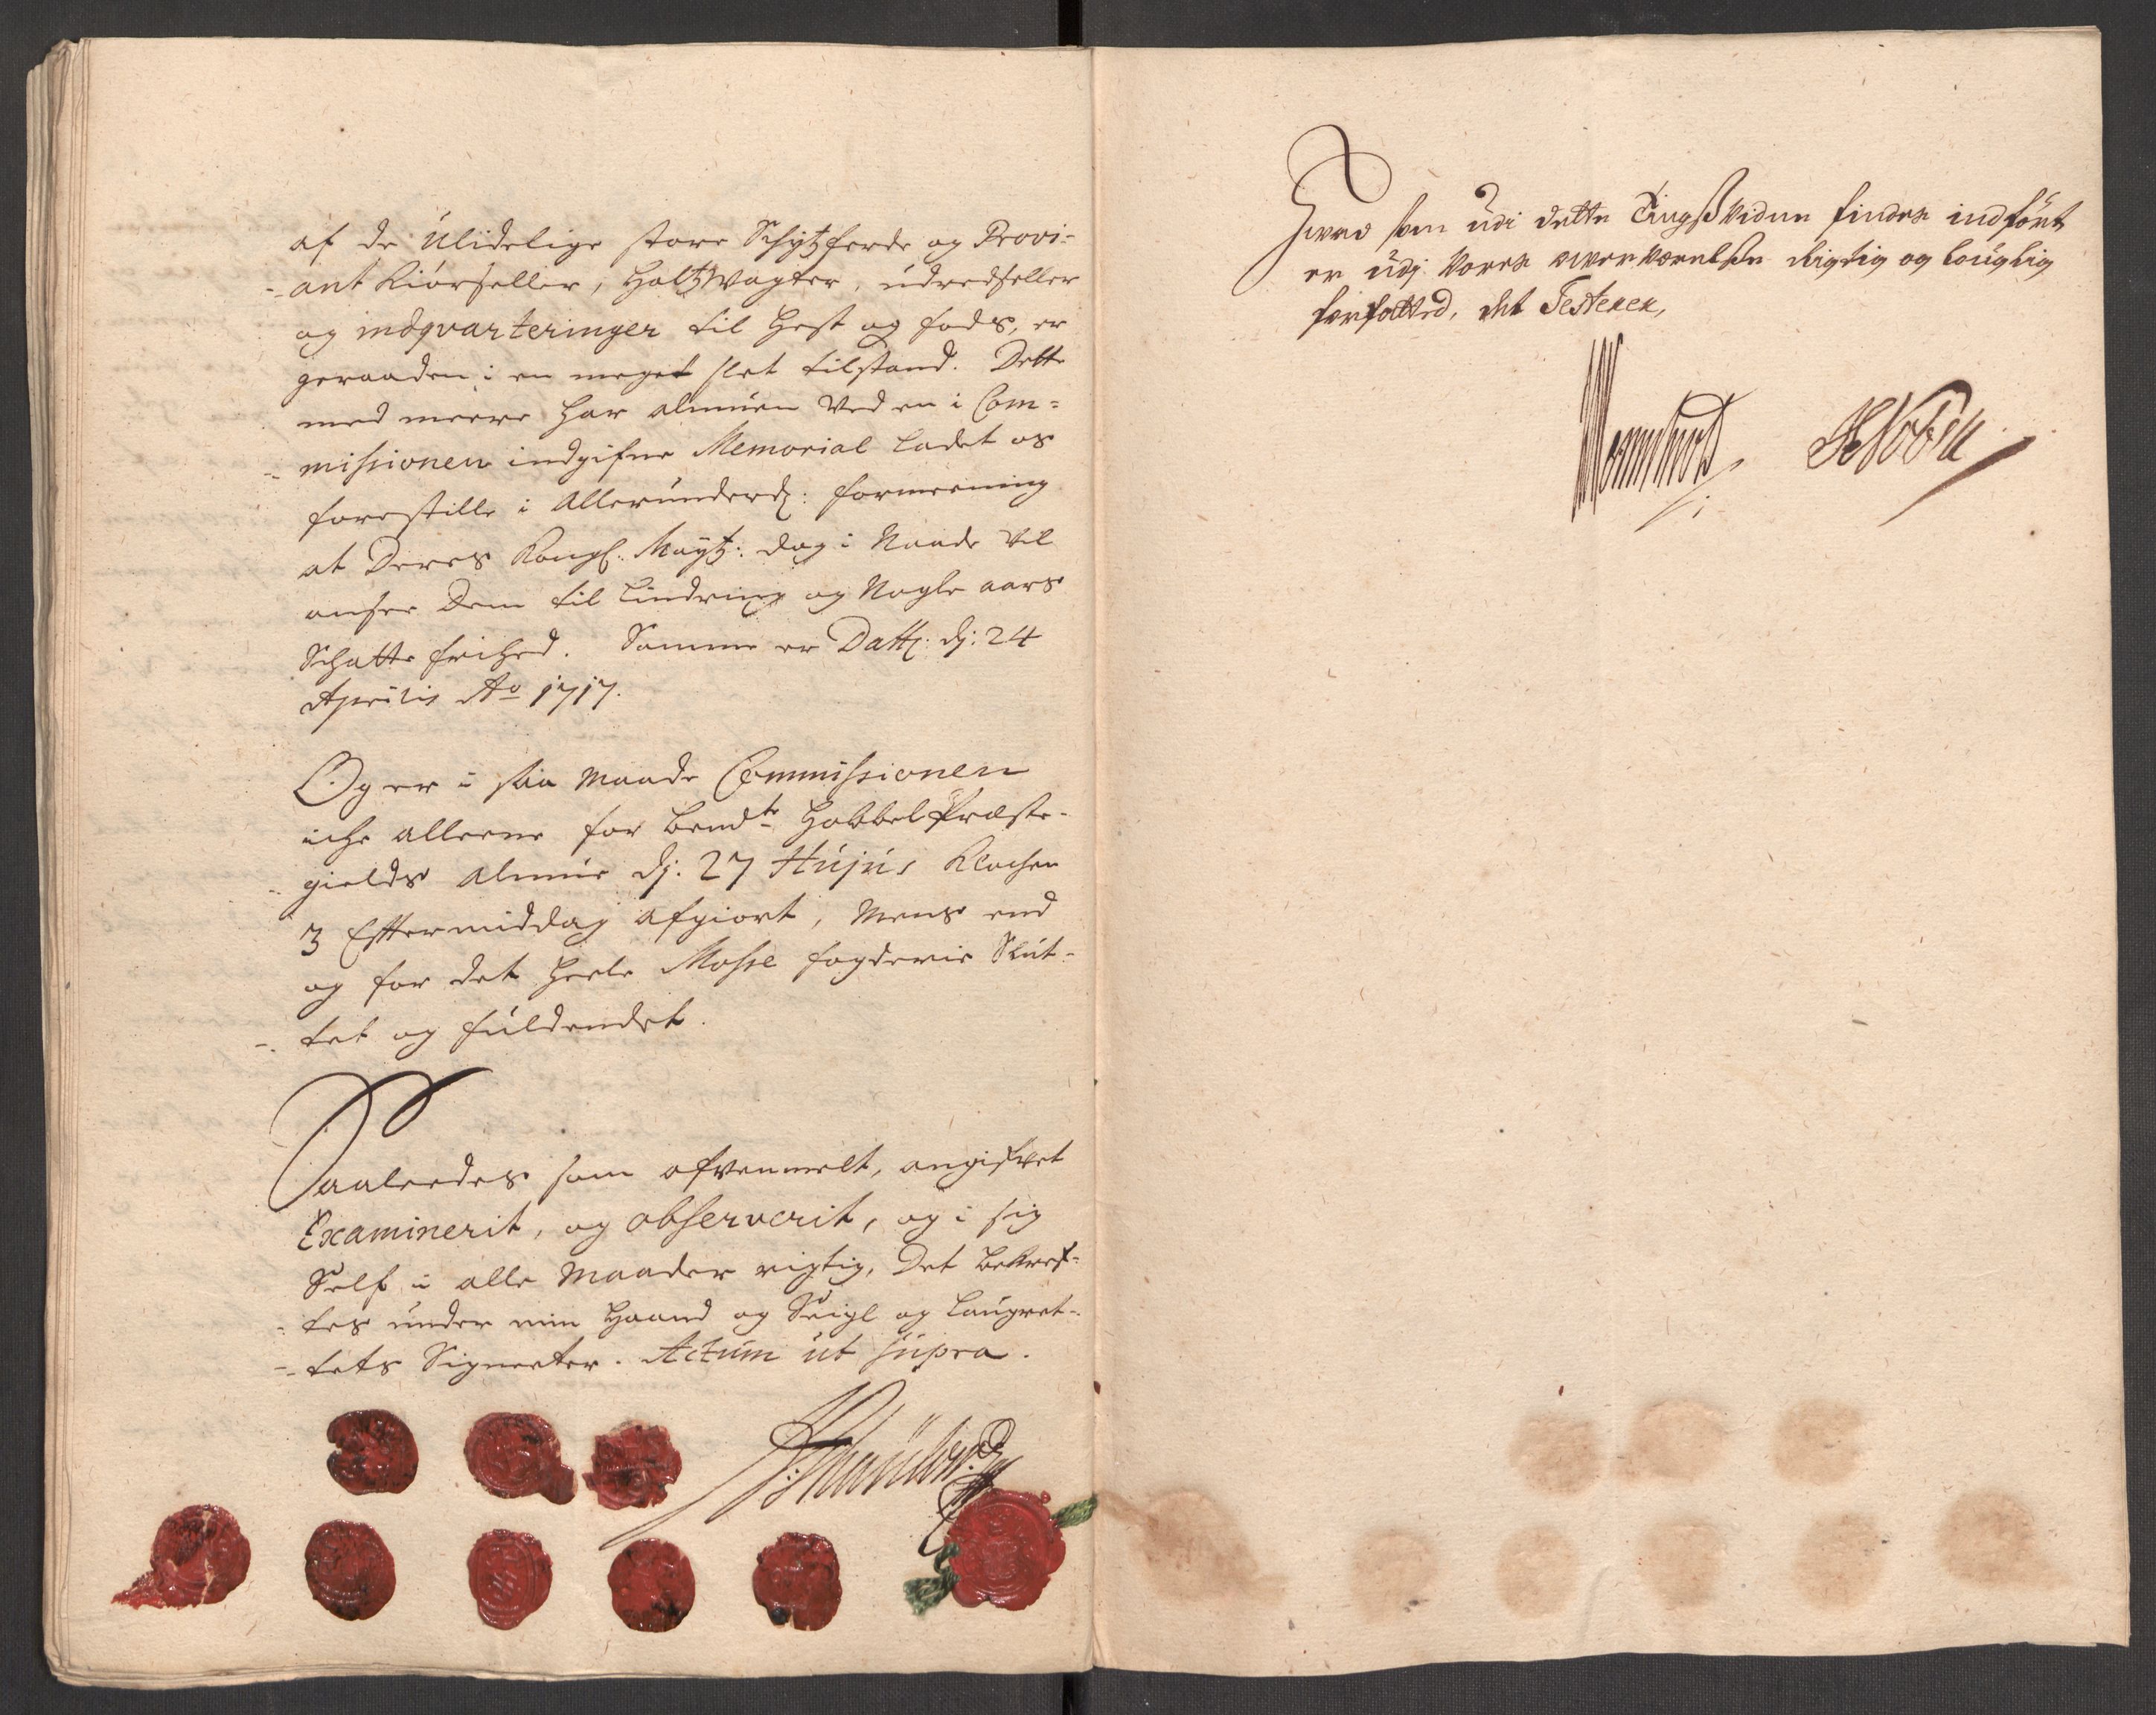 af de Ulidelige store Schytzferde og Provi-
-ant Kiørseller, Holtzwagter, udredseller
og indqvarteringer til Hest og fods, er
geraaden i en meget slet tilstand. Dette
med meere har almuen Ved en i Com-
-missionen indgifne Memorial ladet os
forestille i Allerunderd: formeening
at Deres Kongl: Mayts: dog i Naade vil
ansee Dem til Lindring og Nogle aars
Schatte frihed. Samme er Datt: dj: 24
Aprilis Ao 1717.
Og er i saa Maade Commissionen
iche alleene for bemte Hobbel Præste-
-gields Almue dj: 27 Hujus Klochen
3 Eftermiddag afgiort, Mens end
og for det heele Mosse fogderie Slut-
-tet og fuldendet.
Saaleedes som ofvenmelt, angifvet
Examinerit, og observerit, og i sig
Self i alle Maader rigtig, Det bekref-
-tes under min Haand og Seigl og Laugret-
-tets Signeter. Actum ut supra.
Hvad som udi dette Tingsvidne findes indført
er udj Vores overværelse Rigtig og louglig
forfatted, det Testerer,